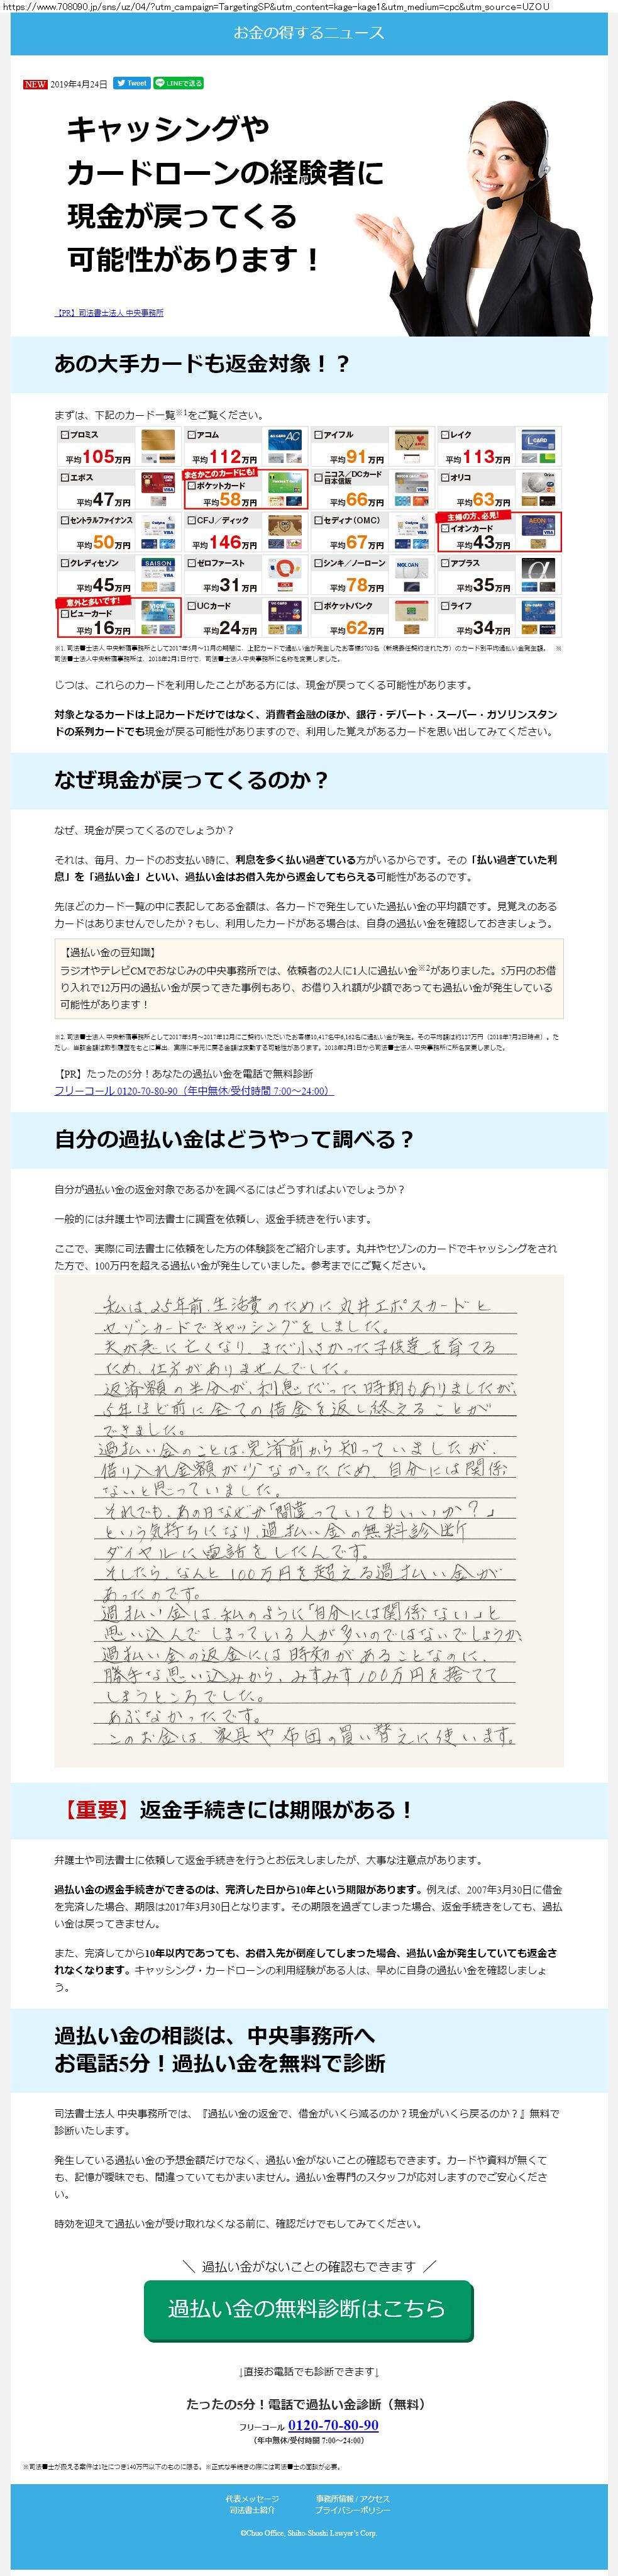 https://www.708090.jp/sns/uz/04/?utm_campaign=TargetingSP&utm_content=kage-kage1&utm_medium=cpc&utm_source=UZOU
お金の得するニュース
NEW 2019年4月24日 Tweet LINEで送る
キャッシングや
カードローンの経験者に
現金が戻ってくる
可能性があります！
【PR】司法書士法人 中央事務所
あの大手カードも返金対象！？
まずは、下記のカード一覧※1をご覧ください。
プロミス 平均105万円
アコム 平均112万円
アイフル 平均91万円
レイク 平均113万円
エポス 平均47万円
まさかこのカードにも!
ポケットカード 平均58万円
ニコス／DCカード 日本信販 平均66万円
オリコ 平均63万円
セントラルファイナンス 平均50万円
CFJ／ディック 平均146万円
セディナ（OMC） 平均67万円
主婦の方、必見!
イオンカード 平均43万円
クレディセゾン 平均45万円
ゼロファースト 平均31万円
シンキ／ノーローン 平均78万円
アプラス 平均35万円
意外と多いです!
ビューカード 平均16万円
UCカード 平均24万円
ポケットバンク 平均62万円
ライフ 平均34万円
※1. 司法■士法人 中央新宿事務所として2017年5月～11月の期間に、上記カードで過払い金が発生したお客様5703名（新規委任契約された方）のカード別平均過払い金発生額。 ※
司法■士法人中央新宿事務所は、2018年2月1日付で、司法■士法人中央事務所に名称を変更しました。
じつは、これらのカードを利用したことがある方には、現金が戻ってくる可能性があります。
対象となるカードは上記カードだけではなく、消費者金融のほか、銀行・デパート・スーパー・ガソリンスタン
ドの系列カードでも現金が戻る可能性がありますので、利用した覚えがあるカードを思い出してみてください。
なぜ現金が戻ってくるのか？
なぜ、現金が戻ってくるのでしょうか？
それは、毎月、カードのお支払い時に、利息を多く払い過ぎている方がいるからです。その「払い過ぎていた利
息」を「過払い金」といい、過払い金はお借入先から返金してもらえる可能性があるのです。
先ほどのカード一覧の中に表記してある金額は、各カードで発生していた過払い金の平均額です。見覚えのある
カードはありませんでしたか？もし、利用したカードがある場合は、自身の過払い金を確認しておきましょう。
【過払い金の豆知識】
ラジオやテレビCMでおなじみの中央事務所では、依頼者の2人に1人に過払い金※2がありました。5万円のお借
り入れで12万円の過払い金が戻ってきた事例もあり、お借り入れ額が少額であっても過払い金が発生している
可能性があります！
※2. 司法■士法人 中央新宿事務所として2017年5月～2017年12月にご契約いただいたお客様10,417名中6,162名に過払い金が発生。その平均額は約127万円（2018年7月2日時点）。た
だし、当該金額は取引履歴をもとに算出、実際に手元に戻る金額は変動する可能性があります。2018年2月1日から司法■士法人 中央事務所に所名変更しました。
【PR】たったの5分！あなたの過払い金を電話で無料診断
フリーコール 0120-70-80-90（年中無休/受付時間 7:00～24:00）
自分の過払い金はどうやって調べる？
自分が過払い金の返金対象であるかを調べるにはどうすればよいでしょうか？
一般的には弁護士や司法書士に調査を依頼し、返金手続きを行います。
ここで、実際に司法書士に依頼をした方の体験談をご紹介します。丸井やセゾンのカードでキャッシングをされ
た方で、100万円を超える過払い金が発生していました。参考までにご覧ください。
私は、25年前、生活費のために丸井エポスカードと
セゾンカードでキャッシングをしました。
夫が急に亡くなり、まだ小さかった子供達を育てる
ため、仕方がありませんでした。
返済額の半分が、利息だった時期もありましたが、
5年ほど前に全ての借金を返し終えることが
できました。
過払い金のことは、完済前から知っていましたが、
借り入れ金額が少なかったため、自分には関係
ないと思っていました。
それでも、あの日なぜか「間違っていてもいいか？」
という気持ちになり、過払い金の無料診断
ダイヤルに電話をしたんです。
そしたら、なんと100万円を超える過払い金が
あったのです。
過払い金は、私のように「自分には関係ない」と
思い込んでしまっている人が多いのではないでしょうか。
過払い金の返金には時効があることなのに、
勝手な思い込みから、みすみす100万円を捨てて
しまうところでした。
あぶなかったです。
このお金は、家具や布団の買い替えに使います。
【重要】返金手続きには期限がある！
弁護士や司法書士に依頼して返金手続きを行うとお伝えしましたが、大事な注意点があります。
過払い金の返金手続きができるのは、完済した日から10年という期限があります。例えば、2007年3月30日に借金
を完済した場合、期限は2017年3月30日となります。その期限を過ぎてしまった場合、返金手続きをしても、過払
い金は戻ってきません。
また、完済してから10年以内であっても、お借入先が倒産してしまった場合、過払い金が発生していても返金さ
れなくなります。キャッシング・カードローンの利用経験がある人は、早めに自身の過払い金を確認しましょ
う。
過払い金の相談は、中央事務所へ
お電話5分！過払い金を無料で診断
司法書士法人 中央事務所では、『過払い金の返金で、借金がいくら減るのか？現金がいくら戻るのか？』無料で
診断いたします。
発生している過払い金の予想金額だけでなく、過払い金がないことの確認もできます。カードや資料が無くて
も、記憶が曖昧でも、間違っていてもかまいません。過払い金専門のスタッフが応対しますのでご安心くださ
い。
時効を迎えて過払い金が受け取れなくなる前に、確認だけでもしてみてください。
＼ 過払い金がないことの確認もできます ／
過払い金の無料診断はこちら
↓直接お電話でも診断できます↓
たったの5分！電話で過払い金診断（無料）
フリーコール 0120-70-80-90
（年中無休/受付時間 7:00～24:00）
※司法■士が扱える案件は1社につき140万円以下のものに限る。※正式な手続きの際には司法■士の面談が必要。
代表メッセージ 事務所情報 / アクセス
司法書士紹介 プライバシーポリシー
©Chuo Office, Shiho-Shoshi Lawyer's Corp.